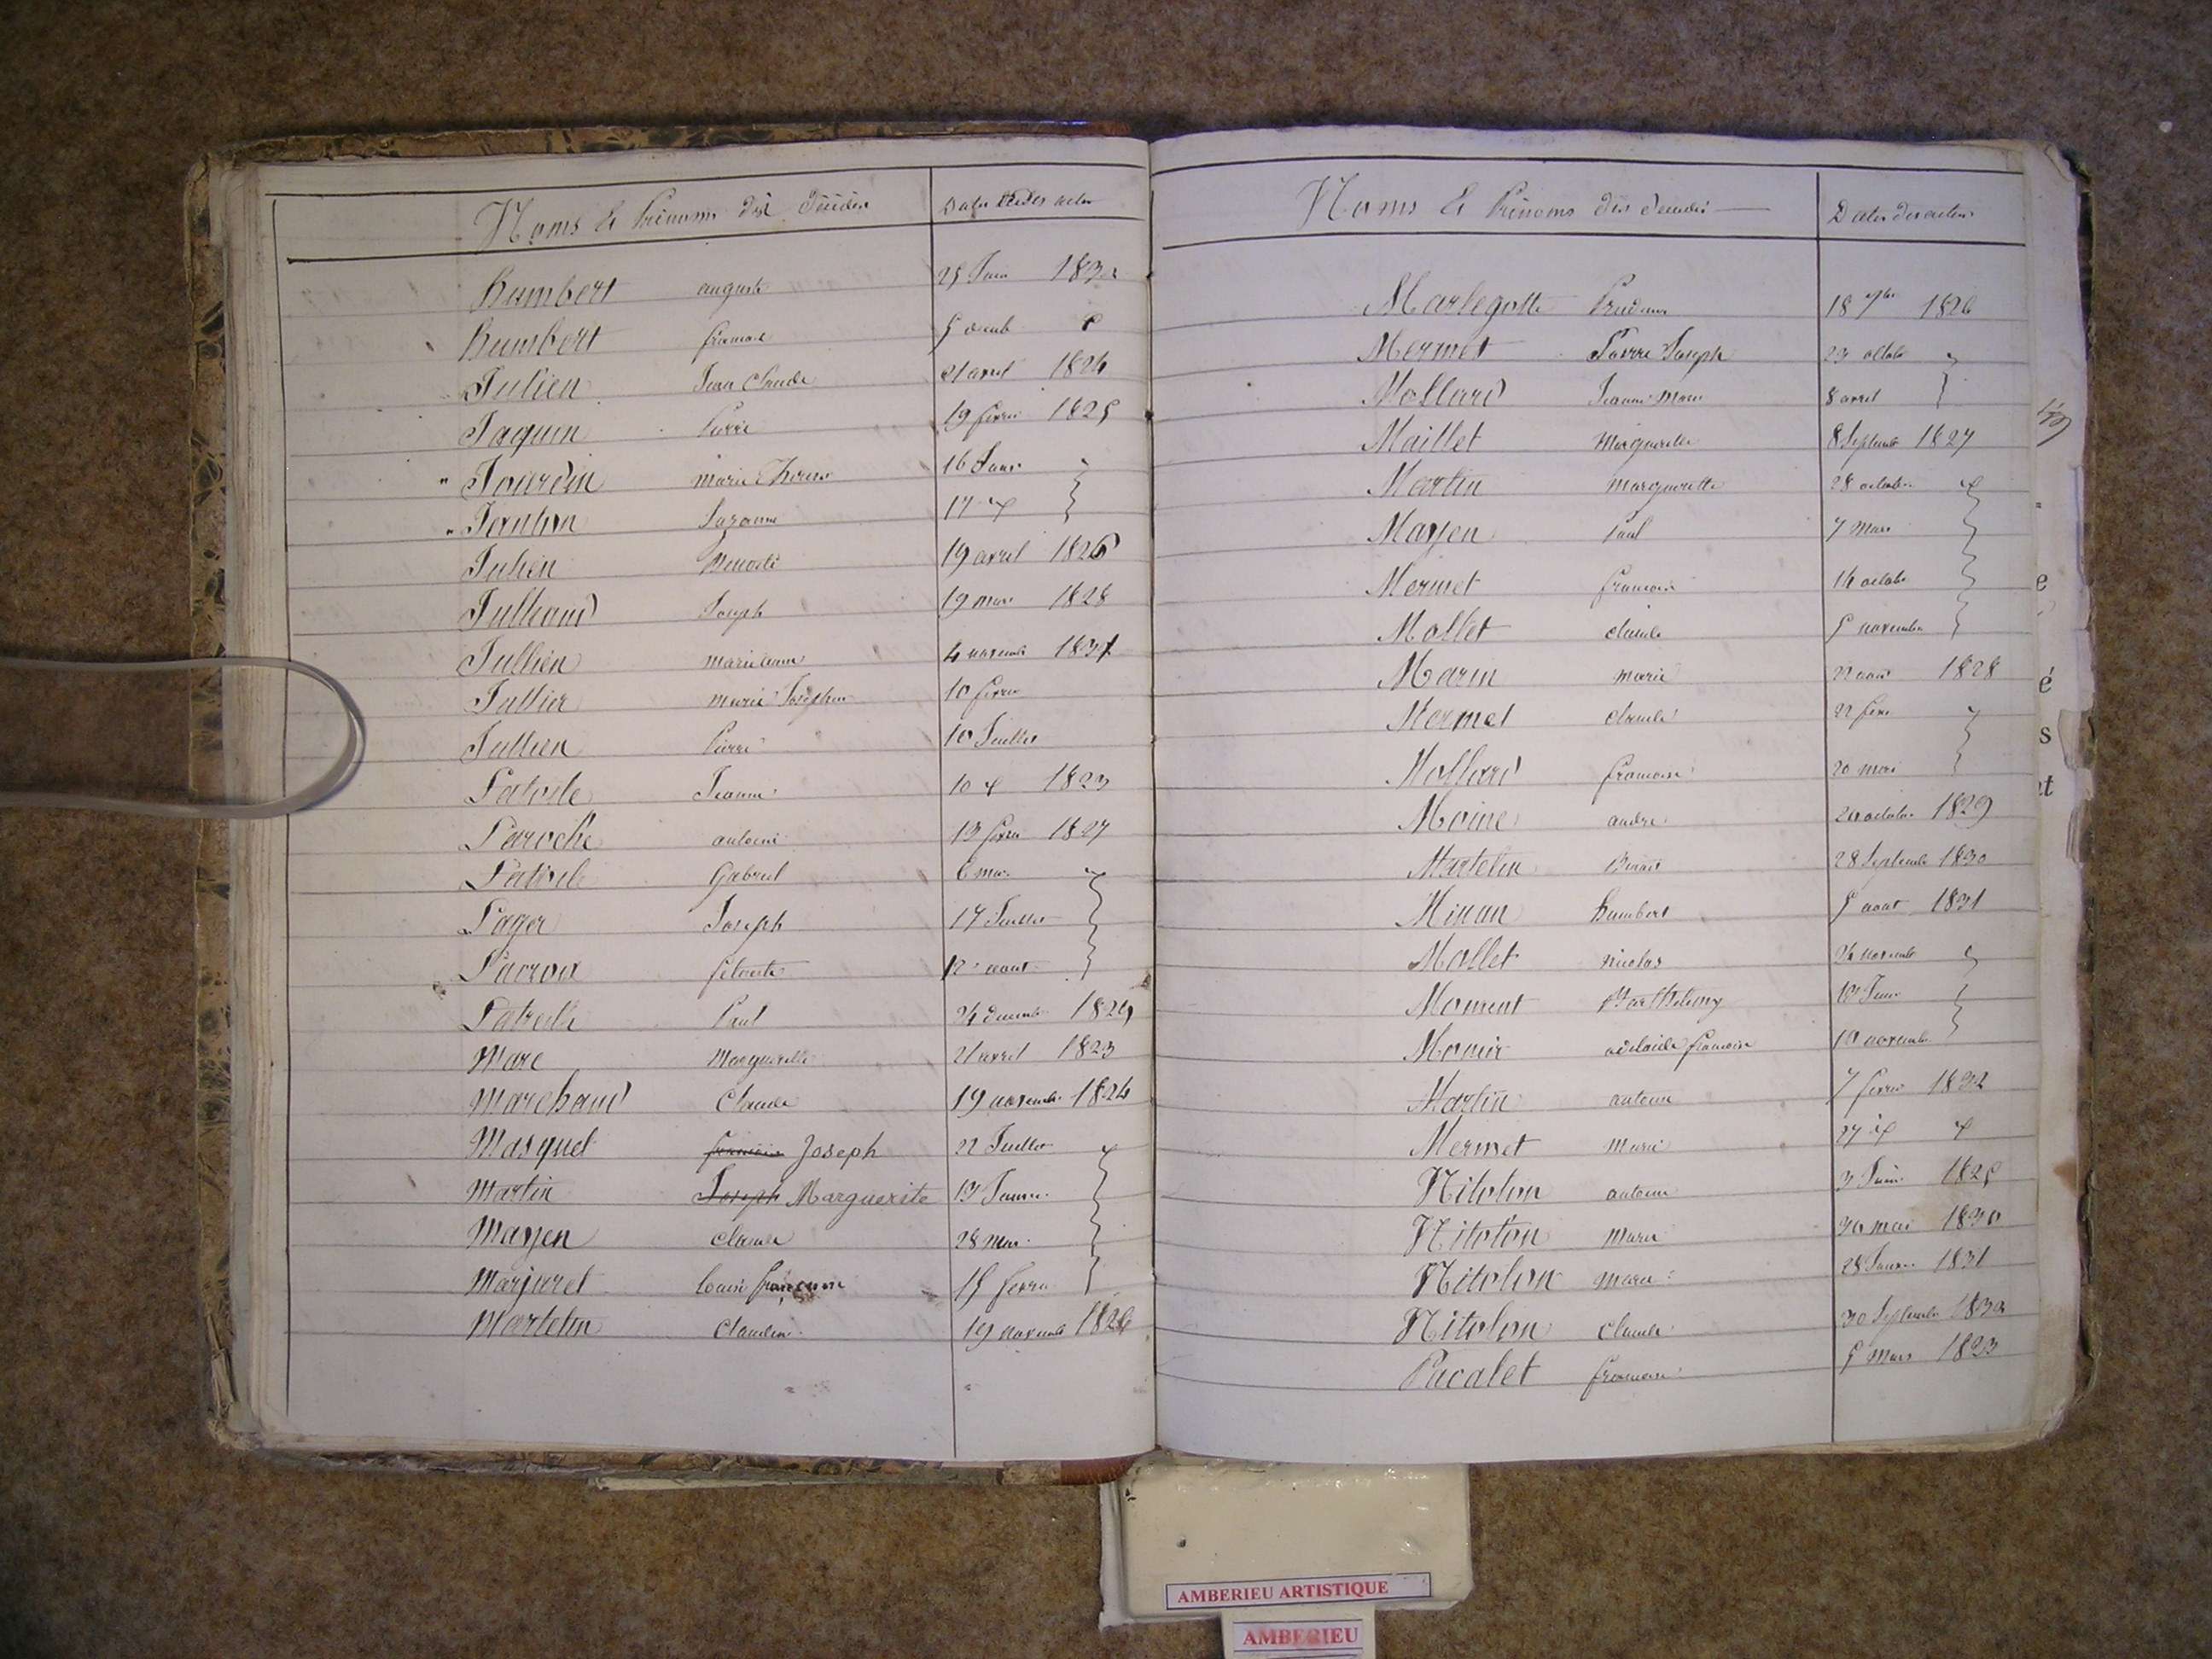 Noms & Prénoms des décédés
Dates des actes
humbert auguste 25 Juin 1832
humbert
Julien Jean Claude 21 avril 1824
Jaquin Pierre 19 févri 1825
Jourdin marie Therese 16 Janv
Suzanne 17
Julien Benoite 19 avril 1826
Julliand Joseph 19 mars 1828
Jullien marie anne 4 novemb 1831
Jullien marie Josephine 10 févri
Jullien Pierre 10 Juillet
Jeanne 10 1823
Laroche antoine 13 févri 1827
Gabriel 6 mai
Lager Joseph 17 Juillet
Lacroix 12 aout
Paul 24 décemb 1829
Marc Marguerite 21 avril 1823
Marchand Claude 19 novemb 1824
Masquet Joseph 22 Juillet
Martin Joseph Marguerite 13 Janvi
Mayen Claude 28 Mai
Marjaret Louis françois 15 févri
Martelin Claudine 19 novemb 1826
Noms & Prénoms des décédés
Dates des actes
Marlegotte 18 1826
Mermet Pierre Joseph 23 octob
Mollard Jeanne Marie 8 avril
Maillet Marguerite 8 Septemb 1827
Martin marguerite 28 octobre
Mayen Paul 7 Mars
Mermet francois 14 octobr
Mollet claude 5 novembr
Marin marie 1828
Mermet claude 22 févr
Mollard francoise 20 mai
Moine andré octobr 1829
Martelin Benoit 28 Septemb 1830
Minan humbert 5 aout 1831
Mollet nicolas 24 novemb
Moment Barthélemy Juin
Monir adelaide francoise 10 novemb
Martin antoine 7 févri 1832
Mermet Marie 27
Nitolon antoine 3 Juin 1825
Nitolon Marie 30 mai 1830
Nitolon marie 28 Janv 1831
Nitolon claude 30 Septemb 1832
Pacalet francoise 5 Mars 1823
e
é
s
at
AMBERIEU ARTISTIQUE
AMBERIEU